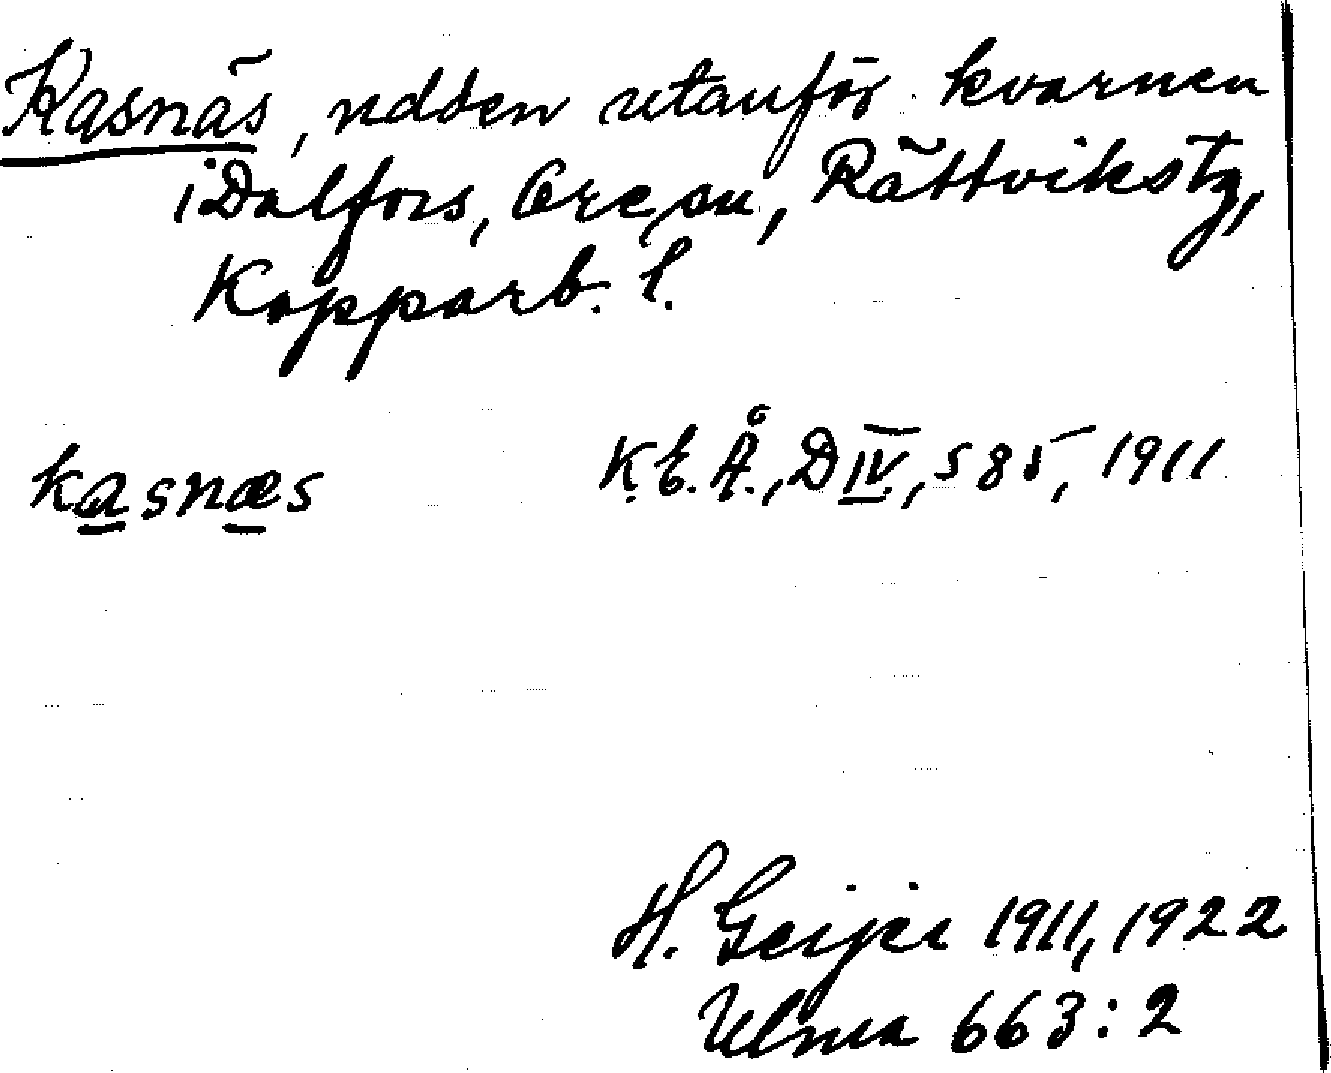 Kasnäs, udden utanför kvarnen
i Dalfors, Ore sn, Rättviks tg,
Kopparb. l.
kasnæs K.E.Å., D IV, s 85, 1911
H. Geijer 1911, 1922
Ulma 663:2